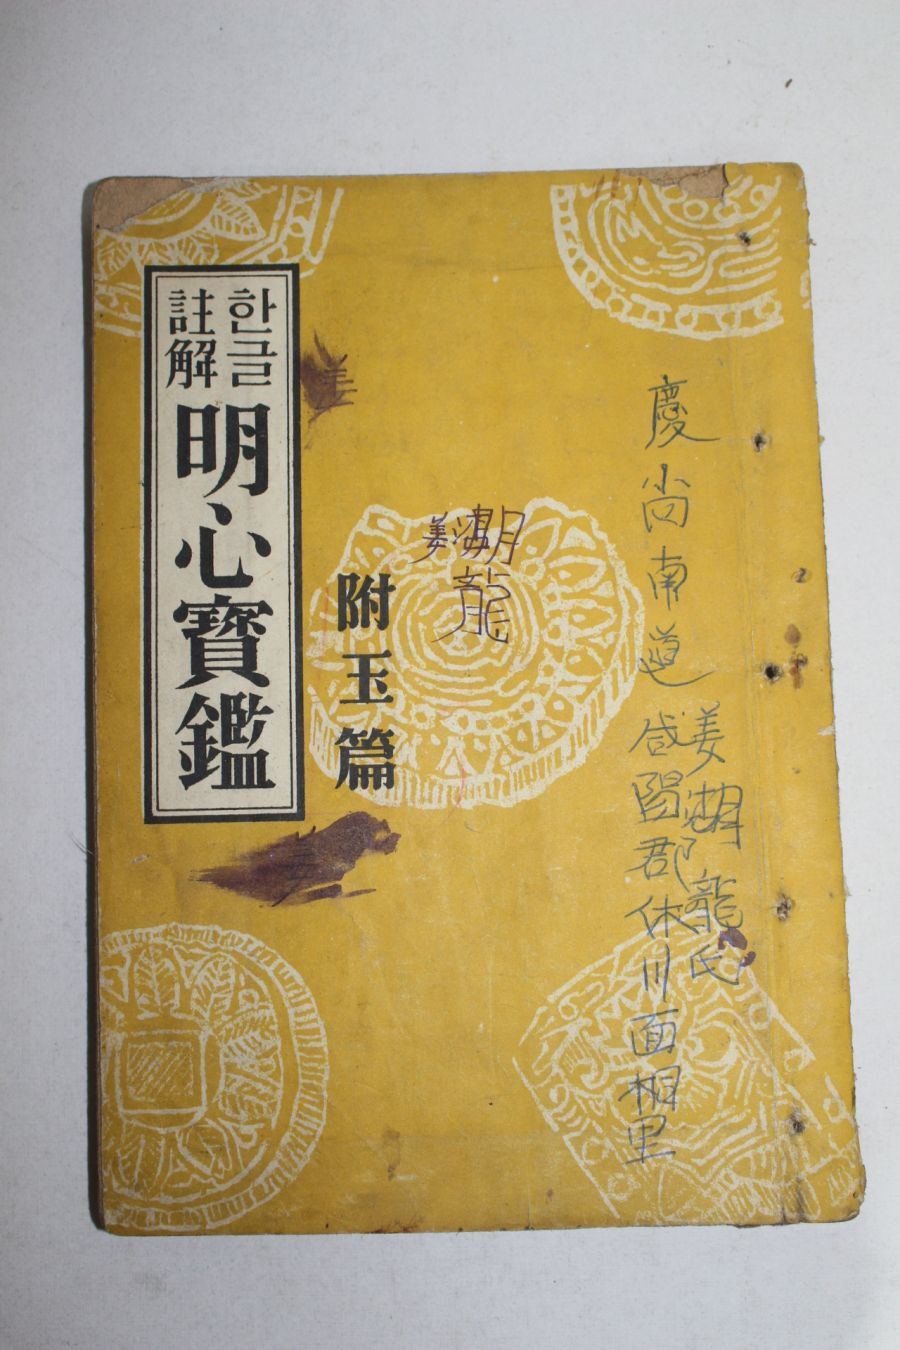 한글
註解
明心寶鑑
附玉篇
姜湖龍
慶尚南道
咸陽郡休川面里
姜湖龍氏